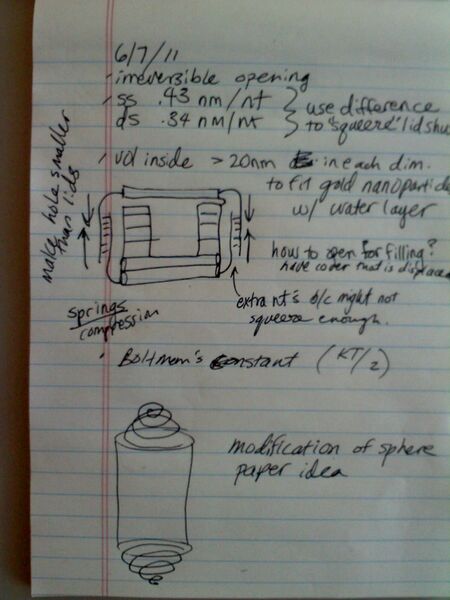 6/7/11
irreversible opening
ss .43 nm/nt
ds .34 nm/nt
use difference
to "squeeze" lid shu
vol inside > 20nm in each dim.
to fit gold nanoparticle
w/ water layer
make hole smaller
than lids
how to open for filling?
have cover that is displace
extra nt's b/c might not
squeeze enough.
springs/
compression
Boltmann's constant (KT/2)
modification of sphere
paper idea